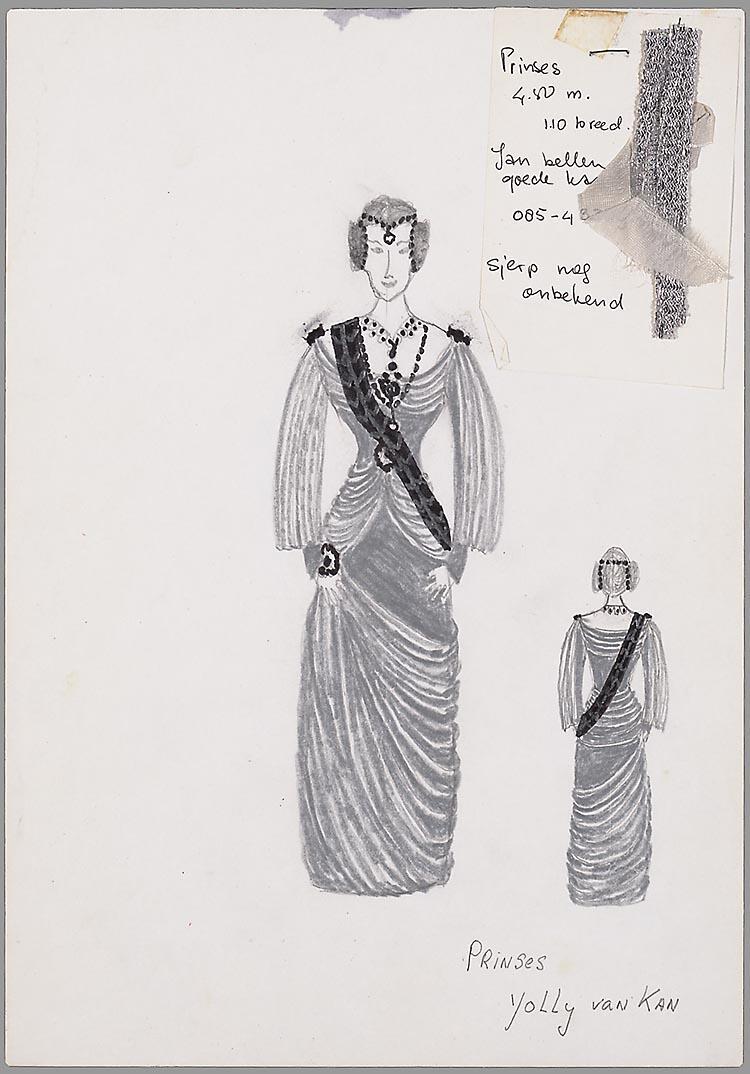 Prinses
4.80 m.
1.10 breed.
Jan bellen
goede
085-4
sjerp nog
onbekend
PRINSES
YOLLY van KAN